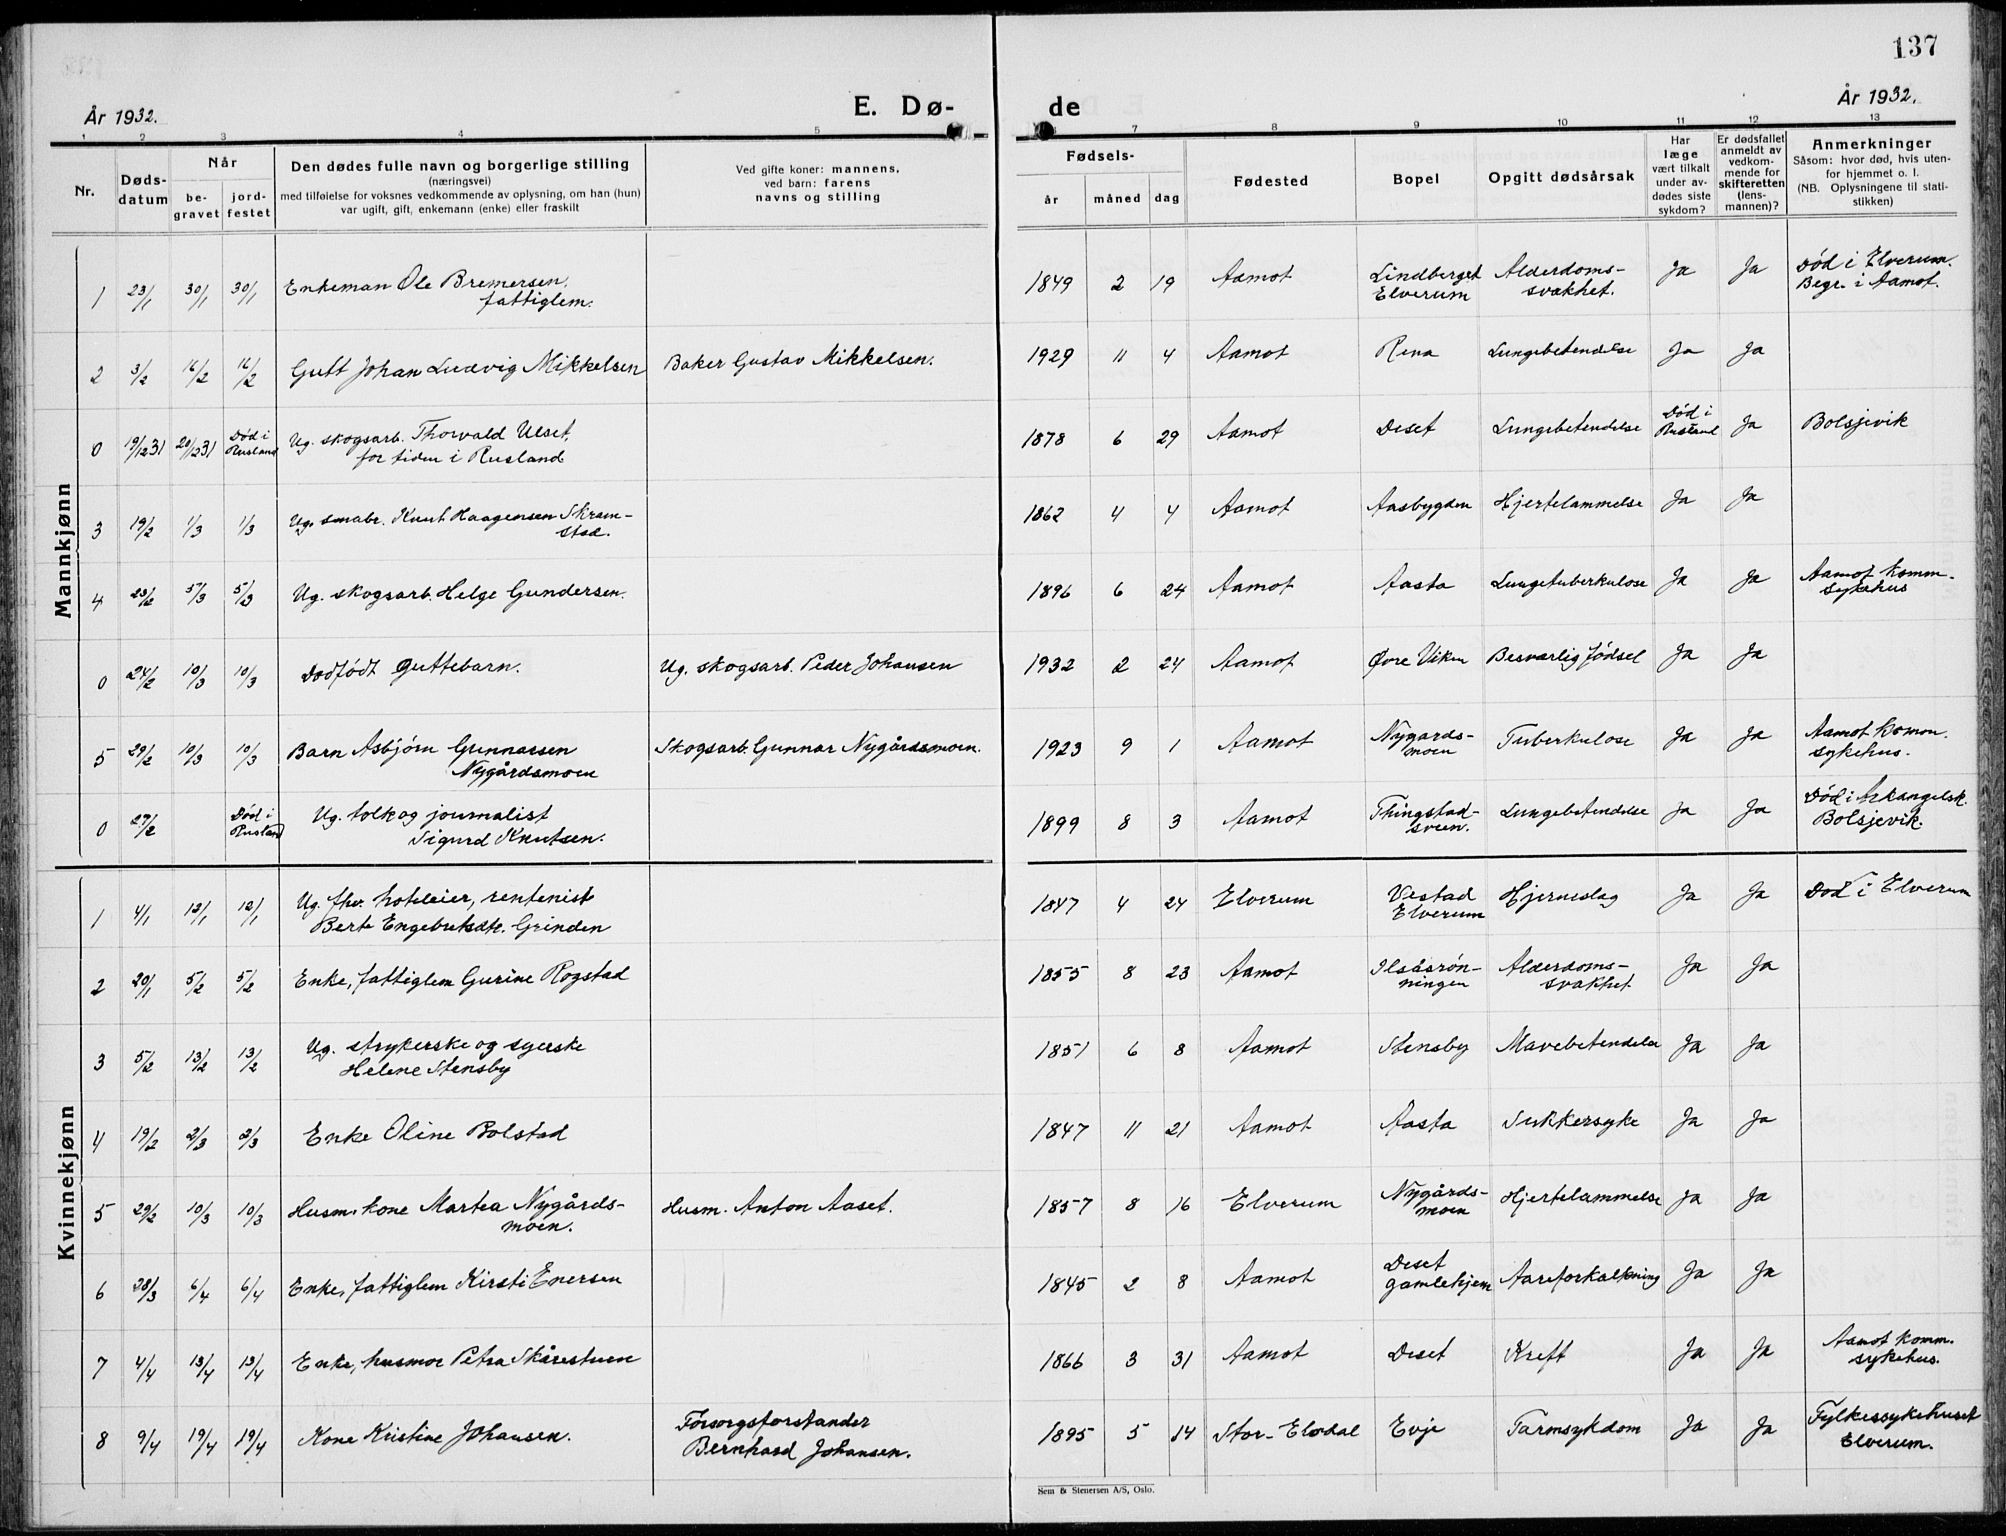 137
År 1932.
E. Dø-
de
År 1932.
1 2 3 4 5
7 8 9 10 11 12 13
Nr.
Døds-
datum
Når
be-
gravet
jord-
festet
Den dødes fulle navn og borgerlige stilling
(næringsvei)
med tilføielse for voksnes vedkommende av oplysning, om han (hun)
var ugift, gift, enkemann (enke) eller fraskilt
Ved gifte koner: mannens,
ved barn: farens
navns og stilling
Fødsels-
år
måned
dag
Fødested
Bopel
Opgitt dødsårsak
Har
læge
vært tilkalt
under av-
dødes siste
sykdom?
Er dødsfallet
anmeldt av
vedkom-
mende for
skifteretten
(lens-
mannen)?
Anmerkninger
Såsom: hvor død, hvis uten-
for hjemmet o. l.
(NB. Oplysningene til stati-
stikken)
Mannkjønn
1 23/1 30/1 30/1 Enkeman Ole Bremersen,
fattiglem.
1849 2 19 Aamot Lindberget
Elverum
Alderdoms-
svakhet.
Ja Ja Død i Elverum.
Begr. i Aamot.
2 3/2 16/2 16/2 Gutt Johan Ludvig Mikkelsen Baker Gustav Mikkelsen. 1929 11 4 Aamot Rena Lungebetendelse Ja Ja
0 19/12 31 20/12 31 Død i
Rusland
Ug. skogsarb. Thorvald Ulset,
for tiden i Rusland
1878 6 29 Aamot Deset Lungebetendelse Død i
Rusland
Ja Bolsjevik
3 19/2 1/3 1/3 Ug. smabr. Knut Haagensen Skram-
stad.
1862 4 4 Aamot Aasbygden Hjertelammelse Ja Ja
4 23/2 5/3 5/3 Ug. skogsarb. Helge Gundersen. 1896 6 24 Aamot Aasta Lungetuberkulose Ja Ja Aamot komm.
sykehus
0 24/2 10/3 10/3 Dødfødt guttebarn. Ug. skogsarb. Peder Johansen 1932 2 24 Aamot Øvre Viken Besværlig fødsel Ja Ja
5 29/2 10/3 10/3 Barn Asbjørn Gunnarsen
Nygårdsmoen
Skogsarb. Gunnar Nygårdsmoen. 1923 9 1 Aamot Nygards-
moen
Tuberkulose Ja Ja Aamot komm.
sykehus.
0 27/2 Død i
Rusland
Ug. tolk og journalist
Sigurd Knutsen.
1899 8 3 Aamot Thingstad-
sveen.
Lungebetendelse Ja Ja Død i Arkangelsk.
Bolsjevik.
Kvinnekjønn
1 4/1 12/1 12/1 Ug. fhv. hoteleier, rentenist
Berte Engebretsdtr. Grinden
1847 4 24 Elverum Vestad
Elverum
Hjerneslag Ja Ja Død i Elverum
2 20/1 5/2 5/2 Enke, fattiglem Gurine Rogstad 1855 8 23 Aamot Ilsåsrøn-
ningen
Alderdoms-
svakhet
Ja Ja
3 5/2 13/2 13/2 Ug. strykerske og syerske
Helene Stensby
1851 6 8 Aamot Stensby Mavebetendelse Ja Ja
4 19/2 2/3 2/3 Enke Oline Bolstad 1847 11 21 Aamot Aasta Sukkersyke Ja Ja
5 29/2 10/3 10/3 Husm. kone Martea Nygårds-
moen.
Husm. Anton Aaset. 1857 8 16 Elverum Nygårds-
moen
Hjertelammelse Ja Ja
6 28/3 6/4 6/4 Enke, fattiglem Kirsti Enersen 1845 2 8 Aamot Deset
gamlehjem
Aareforkalkning Ja Ja
7 4/4 13/4 13/4 Enke, husmor Petra Skårestuen 1866 3 31 Aamot Deset Kreft Ja Ja Aamot komm.
sykehus.
8 9/4 19/4 19/4 Kone Kristine Johansen. Forsorgsforstander
Bernhard Johansen.
1895 5 14 Stor-Elvdal Evje Tarmsykdom Ja Ja Fylkessykehuset
Elverum.
Sem & Stenersen A/S, Oslo.